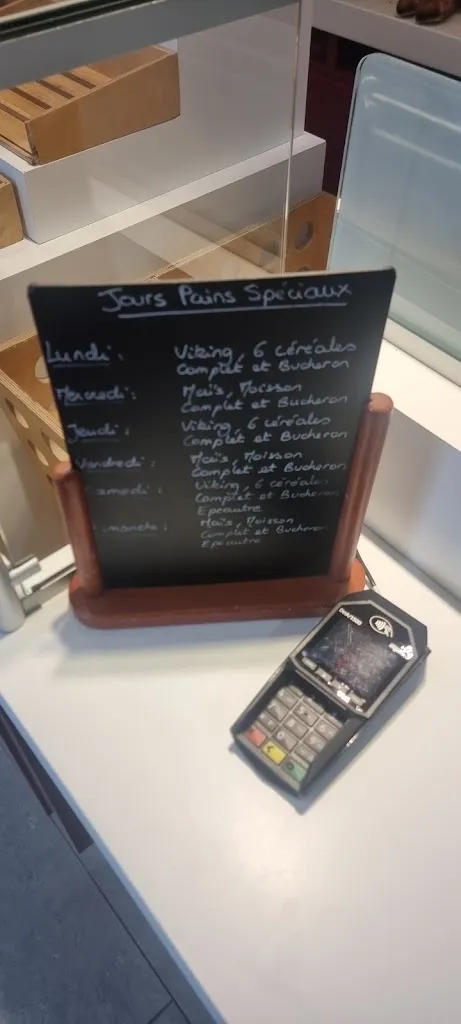 Jours Pains Spéciaux
Lundi : Viking, 6 céréales
Complet et Bucheron
Mercredi : Maïs, Moisson
Complet et Bucheron
Jeudi : Viking, 6 céréales
Complet et Bucheron
Vendredi : Maïs, Moisson
Complet et Bucheron
Samedi : Viking, 6 céréales
Complet et Bucheron
Epeautre
imanche : Maïs, Moisson
Complet et Bucheron
Epeautre